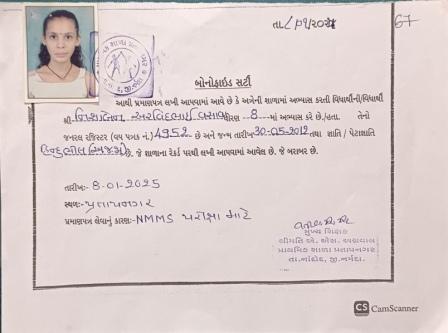 તા. ૮/૧/૨૦૨૫
67
બોનોફાઇડ સર્ટી
આથી પ્રમાણપત્ર લખી આપવામાં આવે છે કે અત્રેની શાળામાં અભ્યાસ કરતી વિદ્યાર્થીની/વિદ્યાર્થી
શ્રી. અરવિંદભાઇ વસાવા ધોરણ - 8 - માં અભ્યાસ કરે છે./હતા. તેનો
જનરલ રજિસ્ટર (વય પત્રક નં.) 4952 છે અને જન્મ તારીખ 30-05-2012 તથા જ્ઞાતિ / પેટાજ્ઞાતિ
હિન્દુ ભીલ છે. જે શાળાના રેકર્ડ પરથી લખી આપવામાં આવેલ છે. જે બરાબર છે.
તારીખ:- 8-01-2025
સ્થળ:- પ્રતાપનગર
પ્રમાણપત્ર લેવાનું કારણ:- NMMS પરીક્ષા માટે
મુખ્ય શિક્ષક
શ્રીમતિ એ. એસ. અગ્રવાલ
પ્રાથમિક શાળા પ્રતાપનગર
તા.નાંદોદ, જી.નર્મદા.
CS CamScanner